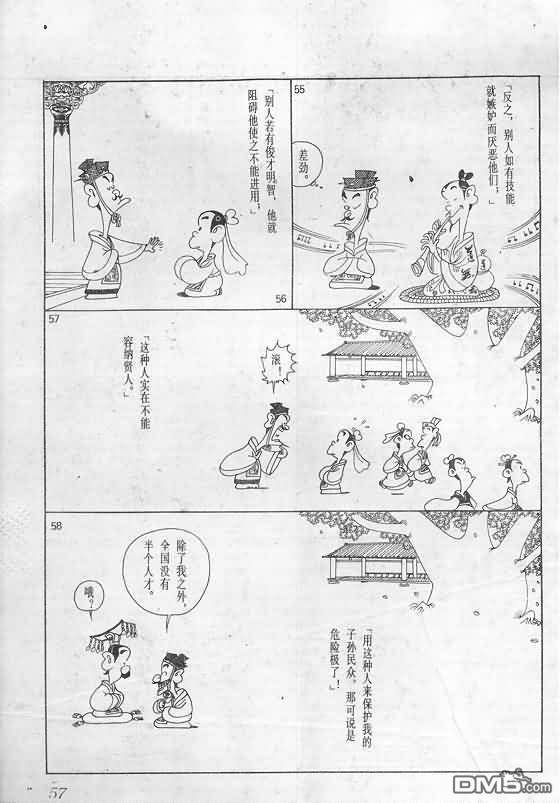 55
「反之，别人如有技能
就嫉妒而厌恶他们；」
差劲。
56
「别人若有俊才明智，他就
阻碍他使之不能进用；」
57
滚！
「这种人实在不能
容纳贤人。」
58
除了我之外，
全国没有
半个人才。
哦？
「用这种人来保护我的
子孙民众。那可说是
危险极了！」
57
DM5.com